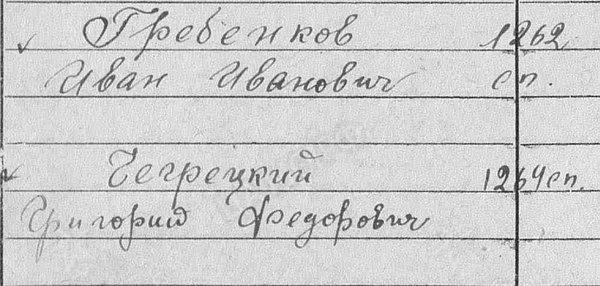 Гребенков 1262
Иван Иванович сп.
Чегрецкий 1264 сп.
Григорий Федорович